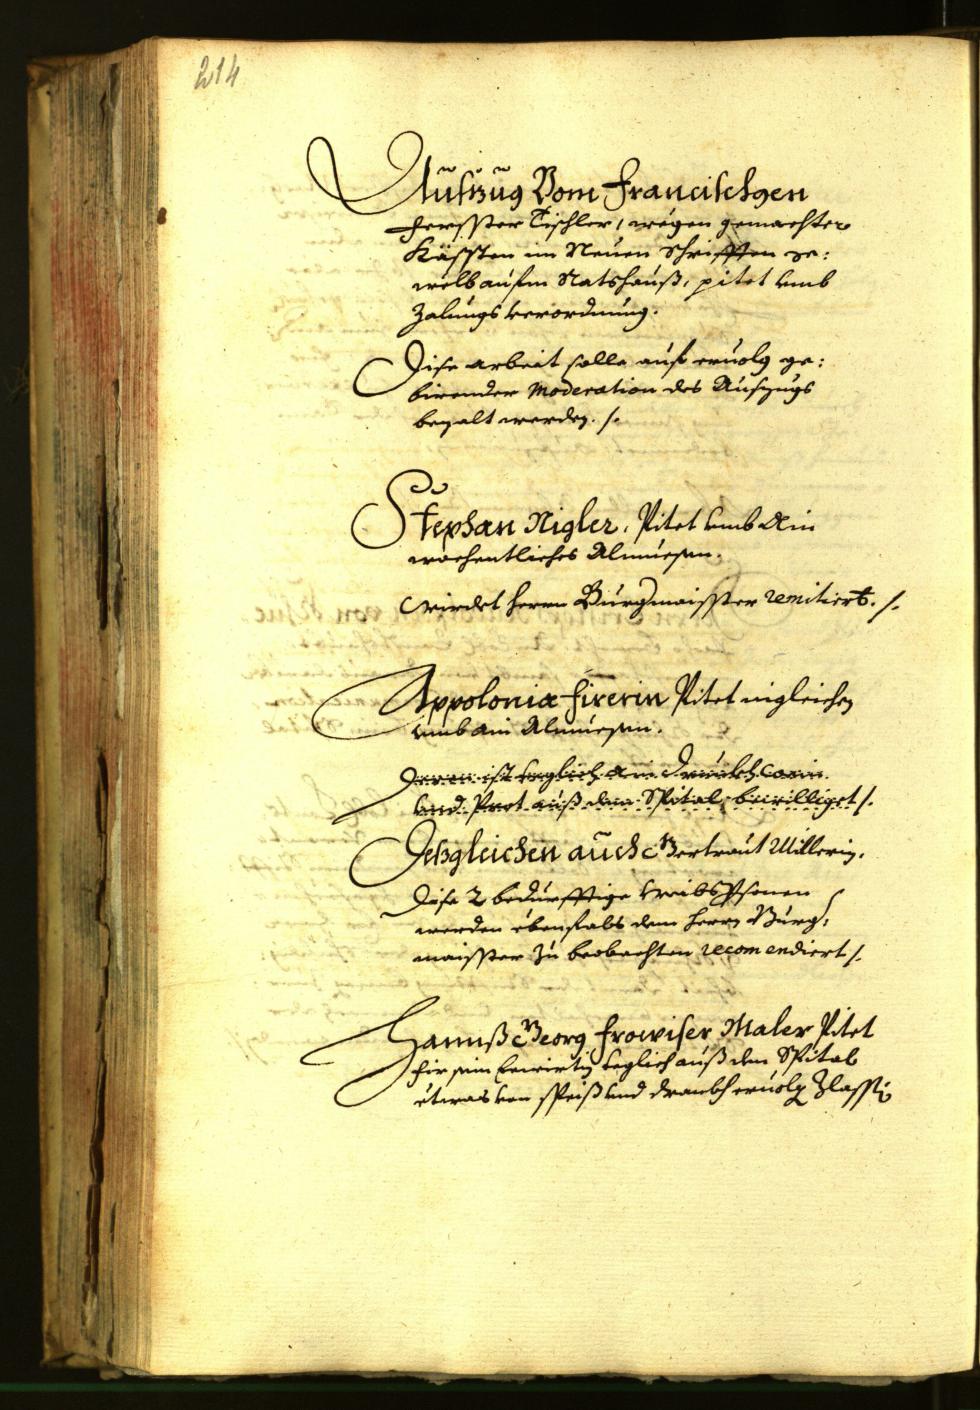 214
Auszug Vom Francischgen
Forsster Tischler, wegen gemachter
Kässten im Neuen Schrifften ge:
welb aufm Ratshauß, pitet umb
Zalungs verordnung.
Dise arbeit solle auf ervolg ge:
birender Moderation des Auszugs
bezalt werden. /.
Stephan Nigler, Pitet umb Ain
wochentliches Almuesen.
wirdet herrn Burgmaisster remitiert. /.
Appolonia Firerin Pitet ingleichen
umb ain Almuesen.
Deren ist teglich ain Trünckh wein
und Prot auß dem Spital bewilliget /.
Deßgleichen auch Gertraut Müllerin.
Dise 2 bedürfftige weibs Personen
werden ebenfals dem herrn Burg:
maisster zu beobachten recomendiert /.
Hannß Georg Frowiser Maler Pitet
für sein teglich auß dem Spital
etwas von speiß und dranckh ervolg Zlassen